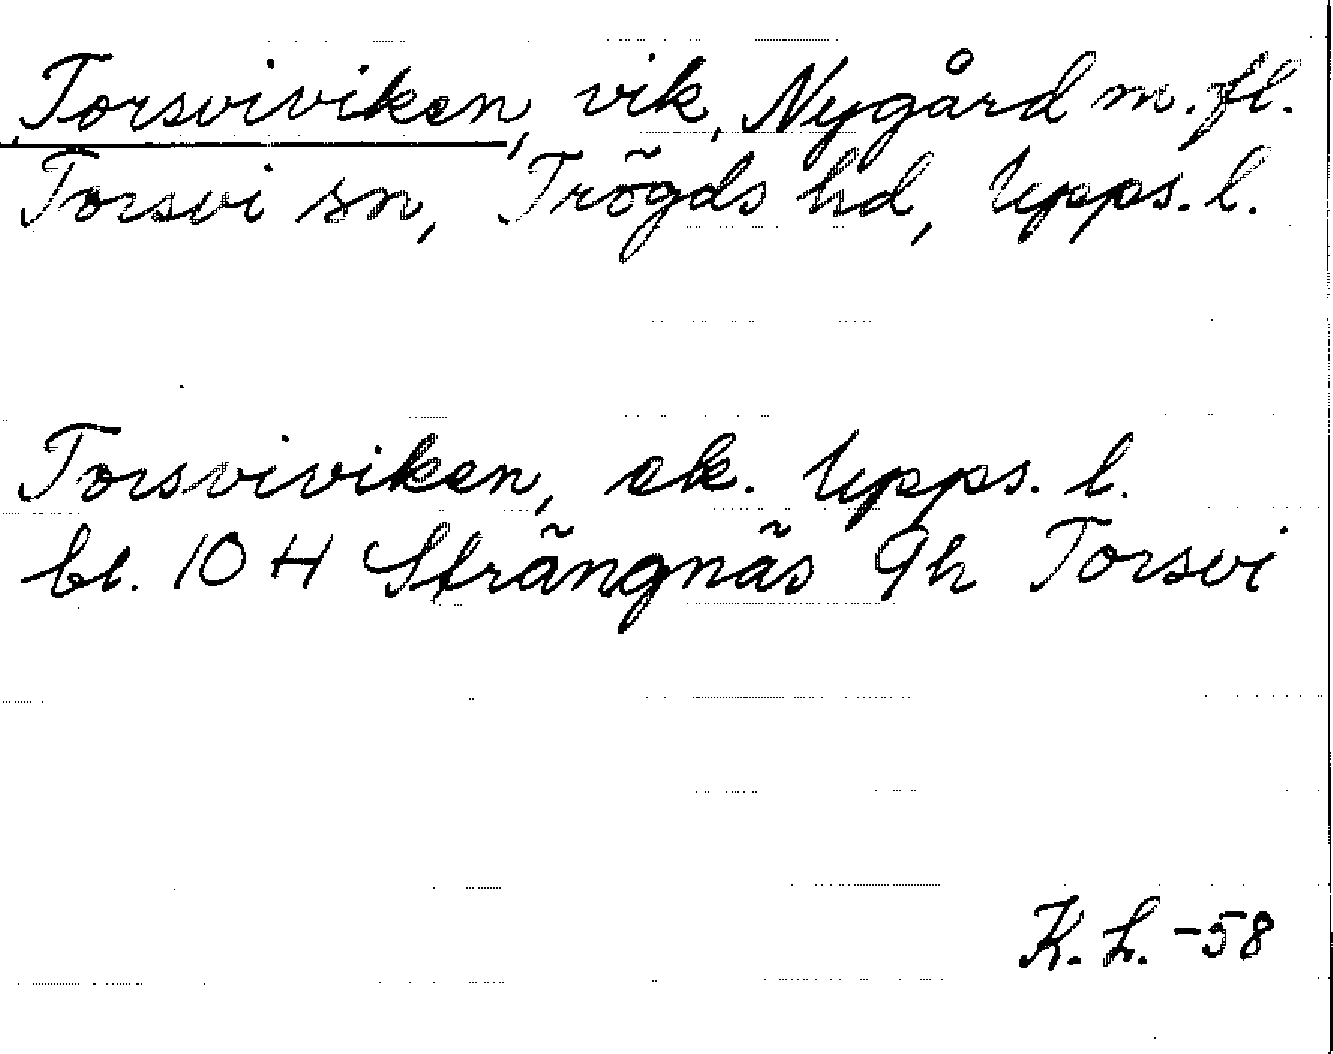 Torsviviken, vik, Nygård m.fl.
Torsvi sn, Trögds hd, Upps. l.
Torsviviken, ek. Upps. l.
bl. 10 H Strängnäs 9h Torsvi
K. L. -58